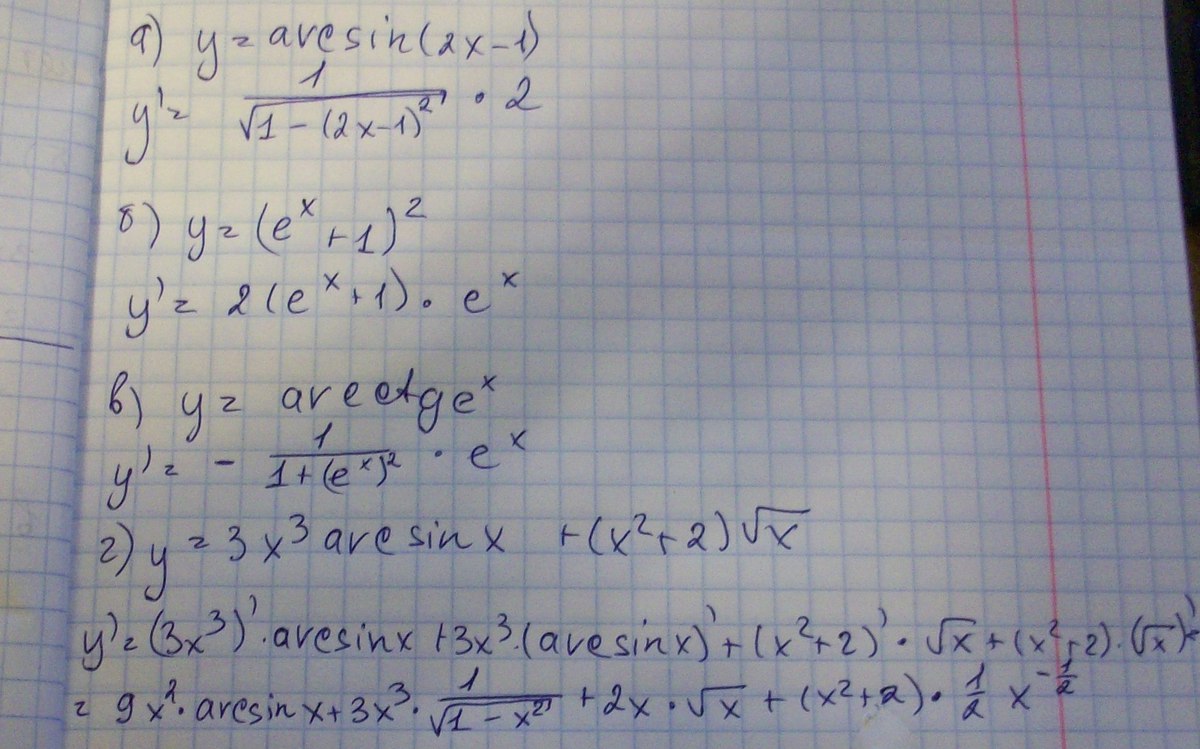 а) y = arcsin(2x-1)
y' = 1/√(1-(2x-1)²) · 2
б) y = (e^x + 1)²
y' = 2(e^x+1) · e^x
в) y = arcctg e^x
y' = - 1/(1+(e^x)²) · e^x
г) y = 3x³ arcsin x + (x²+2)√x
y' = (3x³)' · arcsin x + 3x³ · (arcsin x)' + (x²+2)' · √x + (x²+2) · (√x)' =
= 9x² · arcsin x + 3x³ · 1/√(1-x²) + 2x · √x + (x²+2) · 1/2 x^(-1/2)